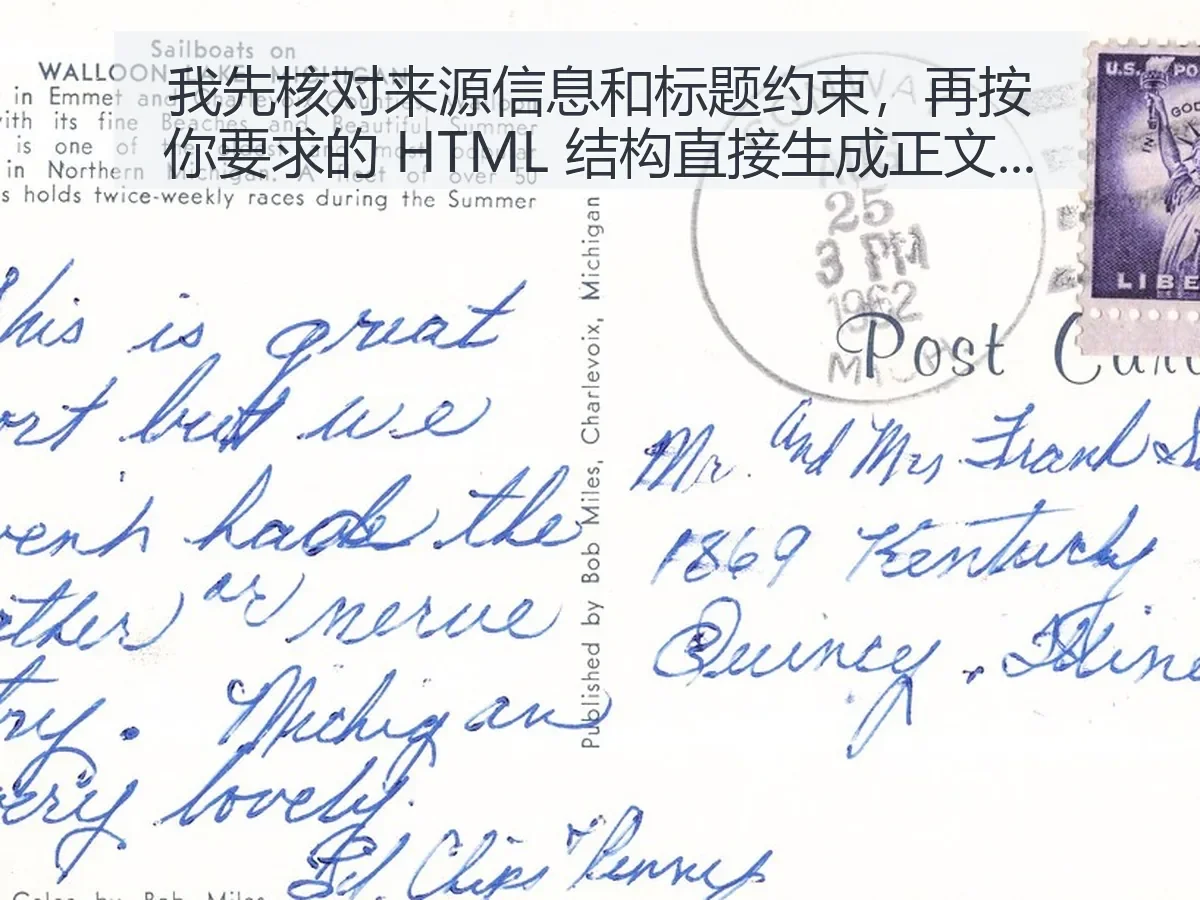 Sailboats on
WALLOON LAKE, MICHIGAN
in Emmet and Charlevoix Counties. Walloon
with its fine Beaches and Beautiful Summer
is one of the oldest and most popular
in Northern Michigan. A fleet of over 50
s holds twice-weekly races during the Summer
我先核对来源信息和标题约束，再按
你要求的 HTML 结构直接生成正文...
25
3 PM
1962
MICH
U.S. PO
IN GOD
LIBE
Post Car
This is great
ort but we
ven't had the
ather or nerve
try. Michigan
very lovely.
Ed, Chips &
Published by Bob Miles, Charlevoix, Michigan
Mr. and Mrs Frank S
1869 Kentucky
Quincy, Illino
Color by Bob Miles